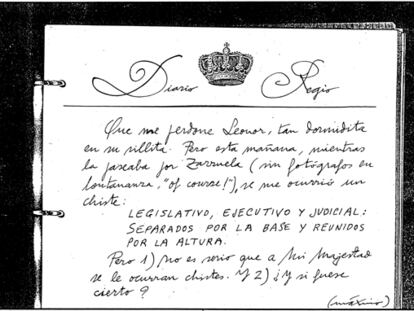 Diario Regio
Que me perdone Leonor, tan dormidita
en su sillita. Pero esta mañana, mientras
la paseaba por Zarzuela (sin fotógrafos en
lontananza, "of course!"), se me ocurrió un
chiste:
LEGISLATIVO, EJECUTIVO Y JUDICIAL:
SEPARADOS POR LA BASE Y REUNIDOS
POR LA ALTURA.
Pero 1) No es serio que a Mi Majestad
se le ocurran chistes. Y 2) ¿Y si fuese
cierto?
(máximo)